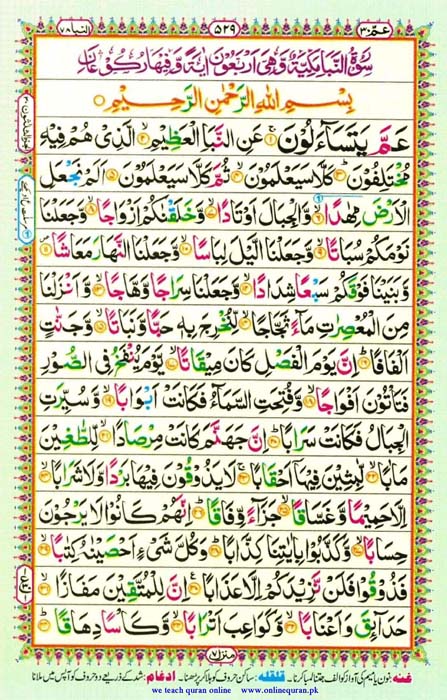 النبا ٧٨
٥٢٩
عم ٣٠
سورة النبا مكية وهي اربعون اية وفيها ركوعان
بِسْمِ اللهِ الرَّحْمٰنِ الرَّحِيْمِ
عَمَّ يَتَسَآءَلُوْنَ ۱ عَنِ النَّبَاِ الْعَظِيْمِ ۲ الَّذِىْ هُمْ فِيْهِ
مُخْتَلِفُوْنَ ۳ كَلَّا سَيَعْلَمُوْنَ ۴ ثُمَّ كَلَّا سَيَعْلَمُوْنَ ۵ اَلَمْ نَجْعَلِ
الْاَرْضَ مِهٰدًا ۶ وَّالْجِبَالَ اَوْتَادًا ۷ وَّخَلَقْنٰكُمْ اَزْوَاجًا ۸ وَّجَعَلْنَا
نَوْمَكُمْ سُبَاتًا ۹ وَّجَعَلْنَا الَّيْلَ لِبَاسًا ۱۰ وَّجَعَلْنَا النَّهَارَ مَعَاشًا ۱۱
وَّبَنَيْنَا فَوْقَكُمْ سَبْعًا شِدَادًا ۱۲ وَّجَعَلْنَا سِرَاجًا وَّهَّاجًا ۱۳ وَّاَنْزَلْنَا
مِنَ الْمُعْصِرٰتِ مَآءً ثَجَّاجًا ۱۴ لِّنُخْرِجَ بِهٖ حَبًّا وَّنَبَاتًا ۱۵ وَّجَنّٰتٍ
اَلْفَافًا ۱۶ اِنَّ يَوْمَ الْفَصْلِ كَانَ مِيْقَاتًا ۱۷ يَّوْمَ يُنْفَخُ فِى الصُّوْرِ
فَتَاْتُوْنَ اَفْوَاجًا ۱۸ وَّفُتِحَتِ السَّمَآءُ فَكَانَتْ اَبْوَابًا ۱۹ وَّسُيِّرَتِ
الْجِبَالُ فَكَانَتْ سَرَابًا ۲۰ اِنَّ جَهَنَّمَ كَانَتْ مِرْصَادًا ۲۱ لِّلطّٰغِيْنَ
مَاٰبًا ۲۲ لّٰبِثِيْنَ فِيْهَآ اَحْقَابًا ۲۳ لَا يَذُوْقُوْنَ فِيْهَا بَرْدًا وَّلَا شَرَابًا ۲۴
اِلَّا حَمِيْمًا وَّغَسَّاقًا ۲۵ جَزَآءً وِّفَاقًا ۲۶ اِنَّهُمْ كَانُوْا لَا يَرْجُوْنَ
حِسَابًا ۲۷ وَّكَذَّبُوْا بِاٰيٰتِنَا كِذَّابًا ۲۸ وَكُلَّ شَىْءٍ اَحْصَيْنٰهُ كِتٰبًا ۲۹
فَذُوْقُوْا فَلَنْ نَّزِيْدَكُمْ اِلَّا عَذَابًا ۳۰ اِنَّ لِلْمُتَّقِيْنَ مَفَازًا ۳۱
حَدَآئِقَ وَاَعْنَابًا ۳۲ وَّكَوَاعِبَ اَتْرَابًا ۳۳ وَّكَاْسًا دِهَاقًا ۳۴
منزل ۷
غنہ: نون یا میم کی آواز کو الف جتنا لمبا کرنا۔ قلقلہ: ساکن حروف کو ہلا کر پڑھنا۔ ادغام: شد کے ذریعے دو حروف کو آپس میں ملانا
we teach quran online www.onlinequran.pk